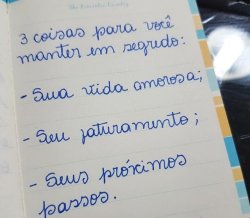 3 coisas para você
manter em segredo:
- Sua vida amorosa;
- Seu faturamento;
- Seus próximos
passos.